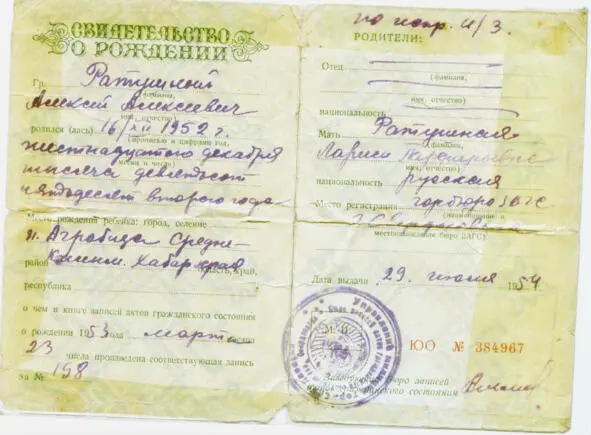 СВИДЕТЕЛЬСТВО
О РОЖДЕНИИ
Гр. Ратушный
(фамилия,
Алексей Алексеевич
имя, отчество)
родился (лась) 16/XII 1952 г.
(прописью и цифрами год,
шестнадцатого декабря
месяц и число)
тысяча девятьсот
пятьдесят второго года
Место рождения ребенка: город, селение
п. Агробаза Средне-
район Хабар край область, край,
республика
о чем в книге записей актов гражданского состояния
о рождении 1953 года март месяца
23 числа произведена соответствующая запись
за № 198
по испр. и/з.
РОДИТЕЛИ:
Отец
(фамилия,
имя, отчество)
национальность
Мать Ратушная
(фамилия,
Лариса
имя, отчество)
национальность русская
Место регистрации горбюро ЗАГС
(наименование и
местонахождение бюро ЗАГС)
Дата выдачи 29 июля 1954
М. П.
ЮО № 384967
бюро записей
гражданского состояния